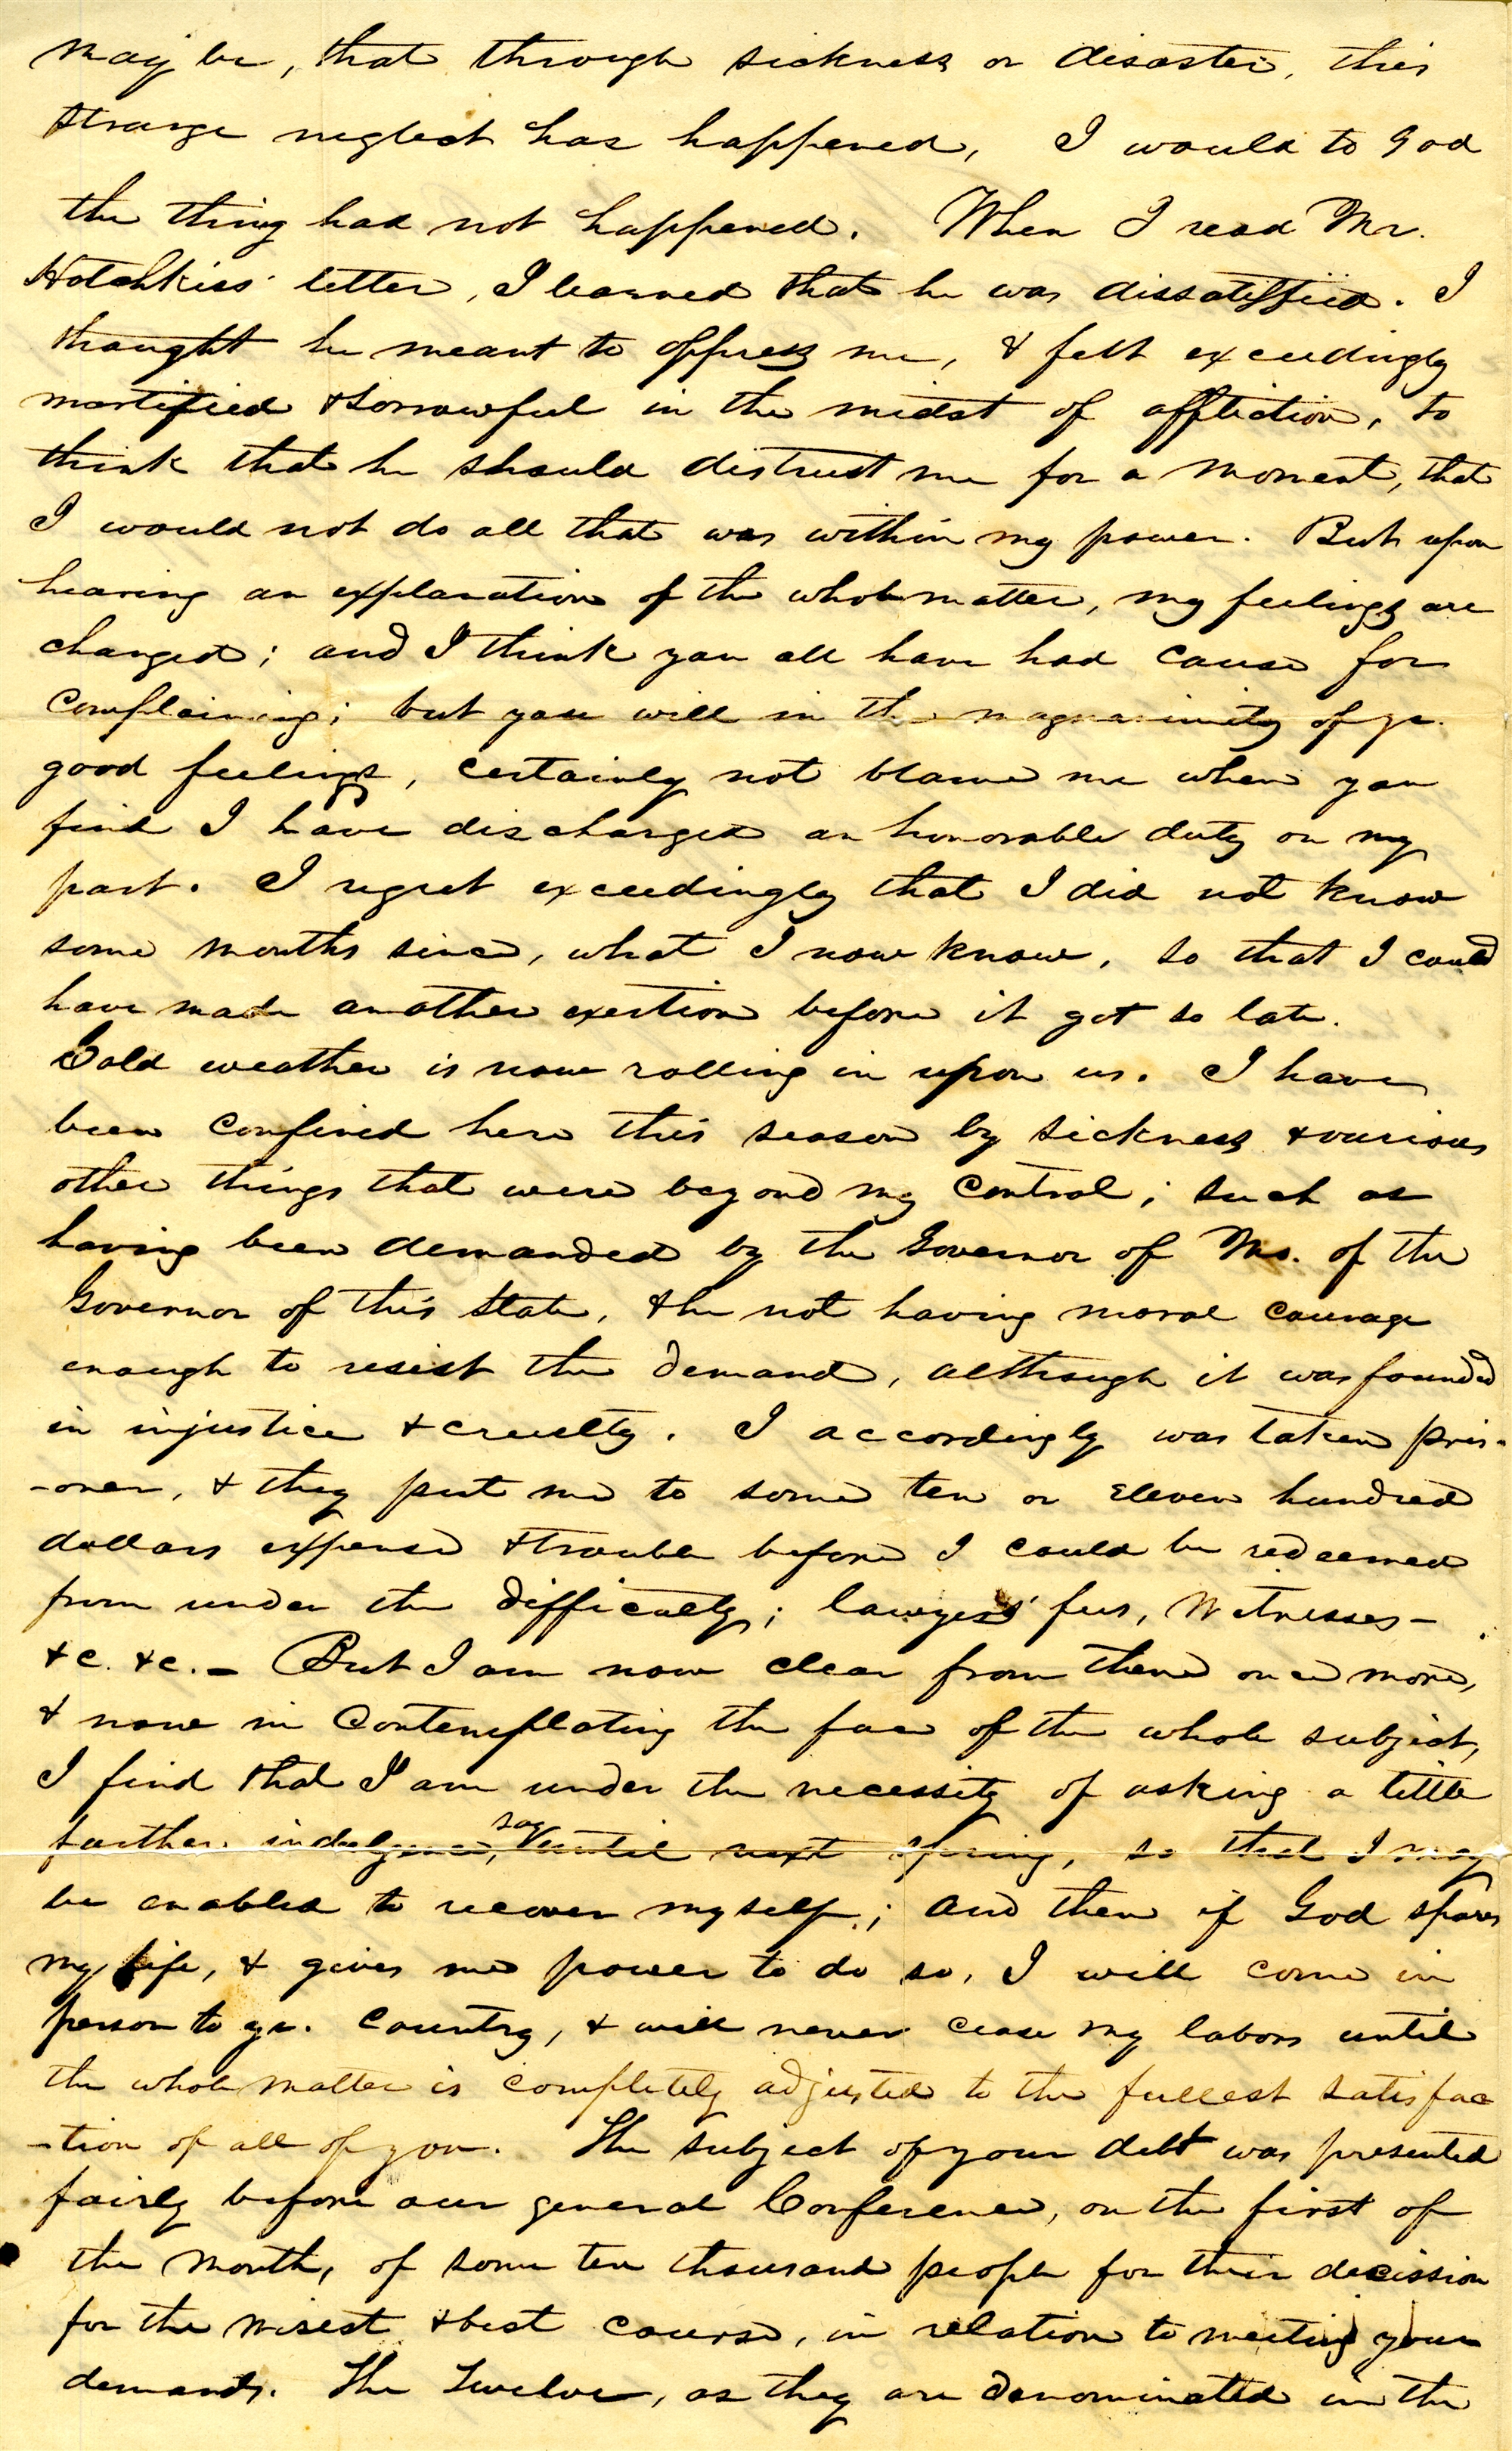 may be, that through sickness or disaster, this
strange neglect has happened, I would to God
the thing had not happened. When I read Mr.
Hotchkiss' letter, I learned that he was dissatisfied. I
thought he meant to oppress me, & felt exceedingly
mortified & sorrowful in the midst of affliction, to
think that he should distrust me for a moment, that
I would not do all that was within my power. But upon
hearing an explanation of the whole matter, my feelings are
changed; and I think you all have had cause for
complaining; but you will in the magnanimity of yr.
good feelings, certainly not blame me when you
find I have discharged an honorable duty on my
part. I regret exceedingly that I did not know
some months since, what I now know, so that I could
have made another exertion before it got so late.
Cold weather is now rolling in upon us. I have
been confined here this season by sickness & various
other things that were beyond my control; such as
having been demanded by the Governor of Mo. of the
Governor of this State, & he not having moral courage
enough to resist the demand, although it was founded
in injustice & cruelty. I accordingly was taken pris-
-oner, & they put me to some ten or eleven hundred
dollars expense & trouble before I could be redeemed
from under the difficulty; lawyers' fees, witnesses-
&c. &c.- But I am now clear from them once more,
& now in contemplating the face of the whole subject,
I find that I am under the necessity of asking a little
further indulgence, say until next spring, so that I may
be enabled to recover myself; and then if God spares
my life, & gives me power to do so, I will come in
person to yr. country, & will never cease my labors until
the whole matter is completely adjusted to the fullest satisfac
-tion of all of you. The subject of your debt was presented
fairly before our general Conference, on the first of
the month, of some ten thousand people for their decission
for the wisest & best course, in relation to meeting your
demands. The Twelve, as they are denominated in the